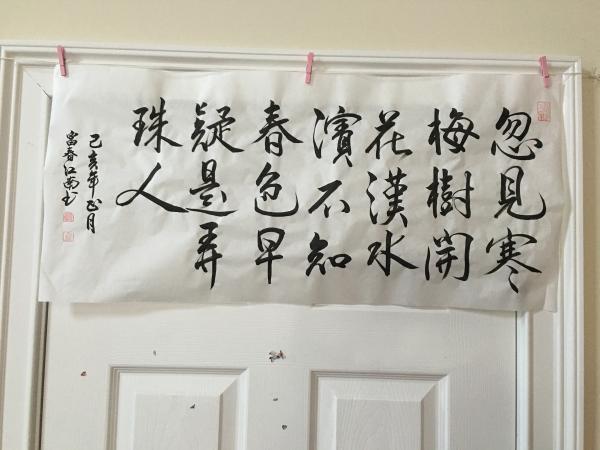 忽見寒
梅樹開
花漢水
濱不知
春色早
疑是弄
珠人
己亥年正月
富春江南书